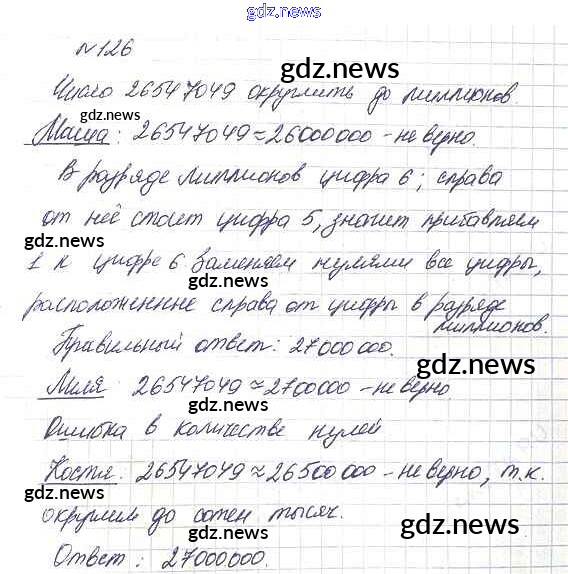 gdz.news
№126
gdz.news
Число 26547049 округлить до миллионов.
gdz.news
Маша: 26547049≈26000000 - не верно.
В разряде миллионов цифра 6; справа
от неё стоит цифра 5, значит прибавляем
gdz.news
1 к цифре 6 Заменяем нулями все цифры,
gdz.news
расположенные справа от цифры в разряде
миллионов.
Правильный ответ: 27000000.
gdz.news
Миля: 26547049≈2700000 - не верно.
gdz.news
Ошибка в количестве нулей
Костя. 26547049≈26500000 - не верно, т.к.
gdz.news
округлем до сотен тысяч.
gdz.news
Ответ: 27000000.
gdz.news